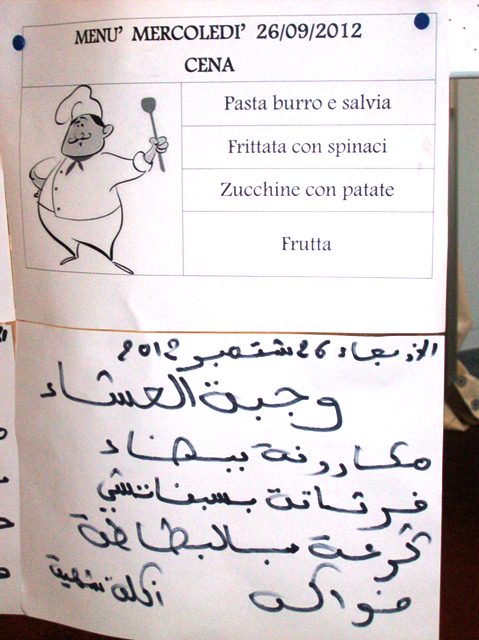 MENU' MERCOLEDI' 26/09/2012
CENA
Pasta burro e salvia
Frittata con spinaci
Zucchine con patate
Frutta
الاربعاء 26 شتمبر 2012
وجبة العشاء
مكارونة بيضاء
فرتاتة بسبناتشي
قرعة بالبطاطة
فواكه اكلة شهية